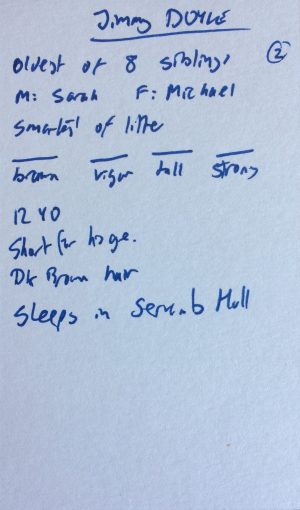 Jimmy DOYLE
②
oldest of 8 siblings
M: Sarah F: Michael
Smartest of litter
brawn vigor tall strong
12 YO
Short for his age.
Dk Brown hair
Sleeps in Hall